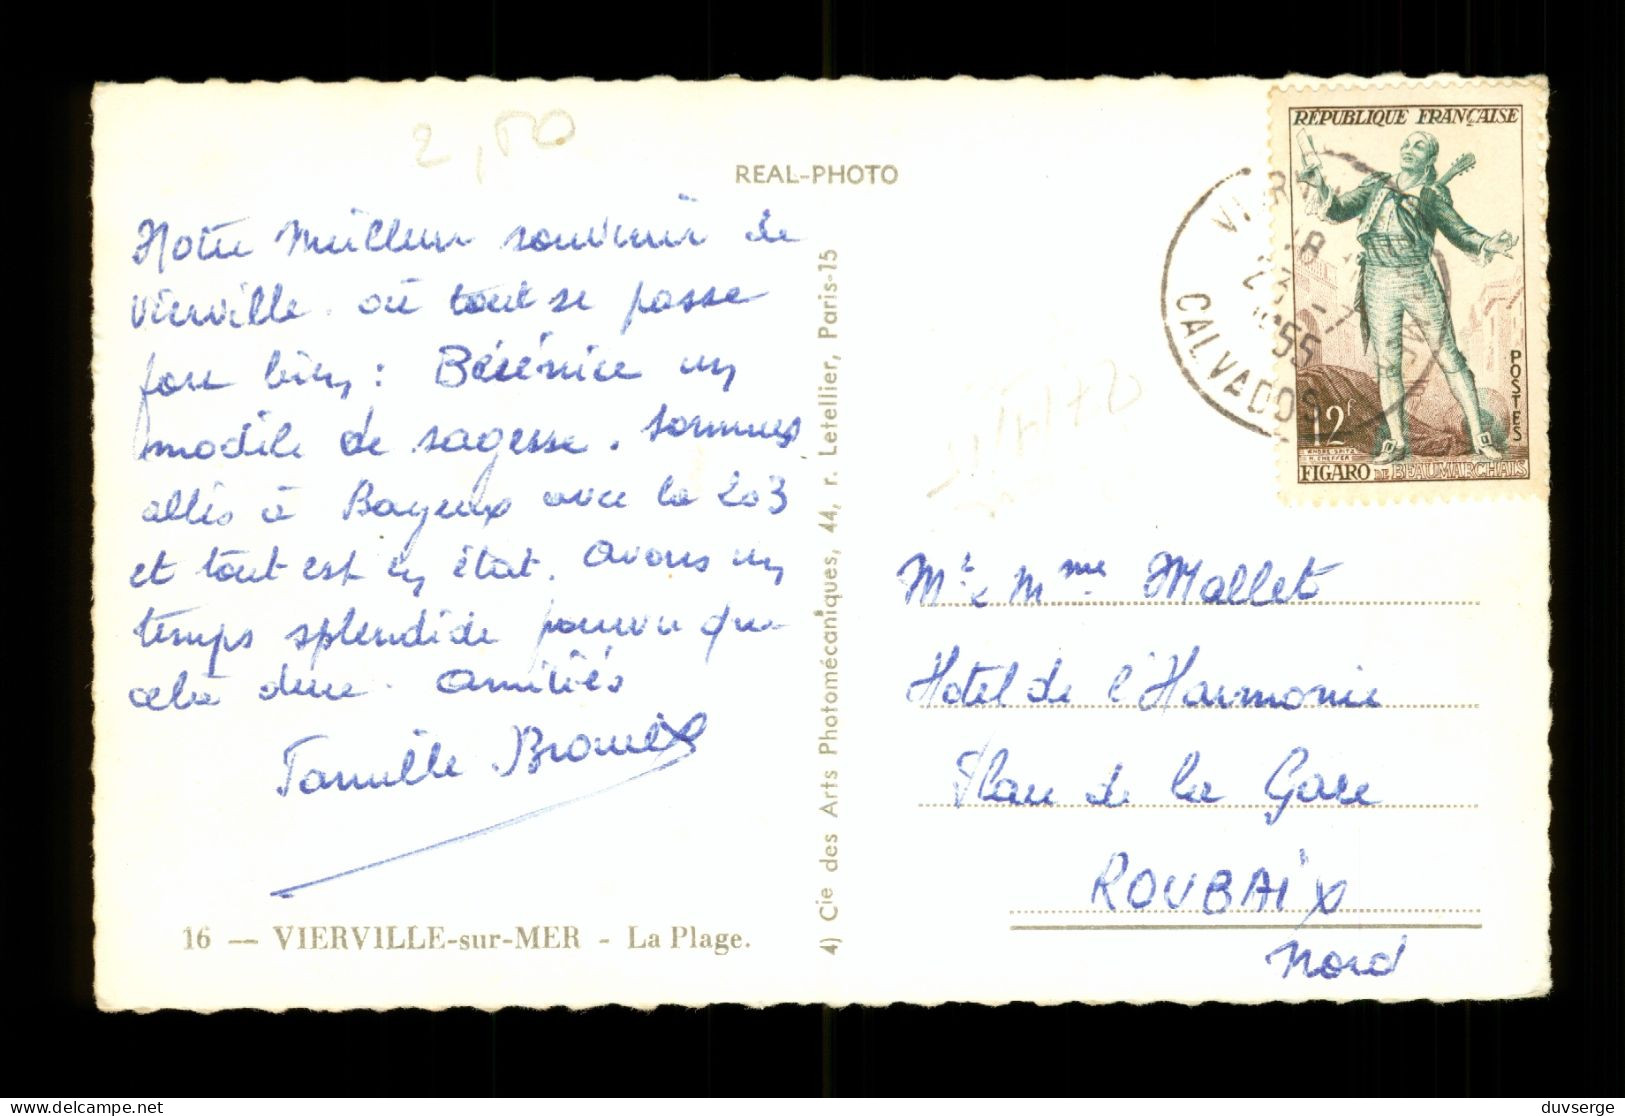 2,50
REAL-PHOTO
Notre Meilleur souvenir de
Vierville. où tout se passe
fort bien : Bérénice un
modèle de sagesse. Sommes
allés à Bayeux avec la 203
et tout est en état. Avons un
temps splendide pourvu que
cela dure. Amitiés
Famille
16 — VIERVILLE-sur-MER - La Plage.
4) Cie des Arts Photomécaniques, 44, r. Letellier, Paris-15
RÉPUBLIQUE FRANÇAISE
POSTES
12f
FIGARO DE BEAUMARCHAIS
18
1955
CALVADOS
Mr & Mme Mallet
Hotel de l'Harmonie
Place de la Gare
ROUBAIX
Nord
duvserge